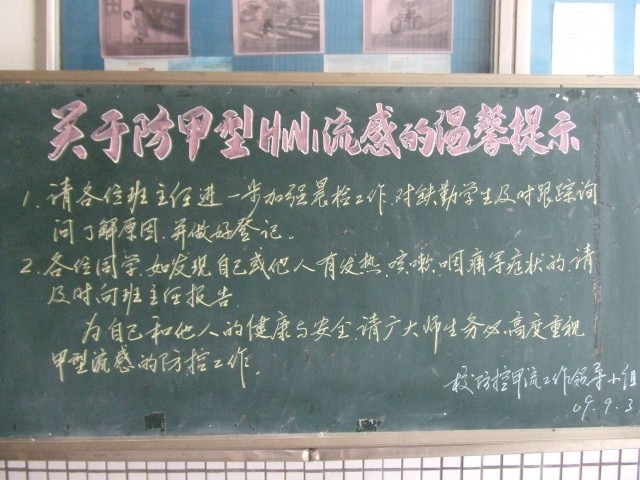 关于防甲型H1N1流感的温馨提示
1. 请各位班主任进一步加强晨检工作，对缺勤学生及时跟踪询
问了解原因，并做好登记。
2. 各位同学，如发现自己或他人有发热、咳嗽、咽痛等症状的，请
及时向班主任报告。
为自己和他人的健康与安全，请广大师生务必高度重视
甲型流感的防控工作。
校防控甲流工作领导小组
09.9.3